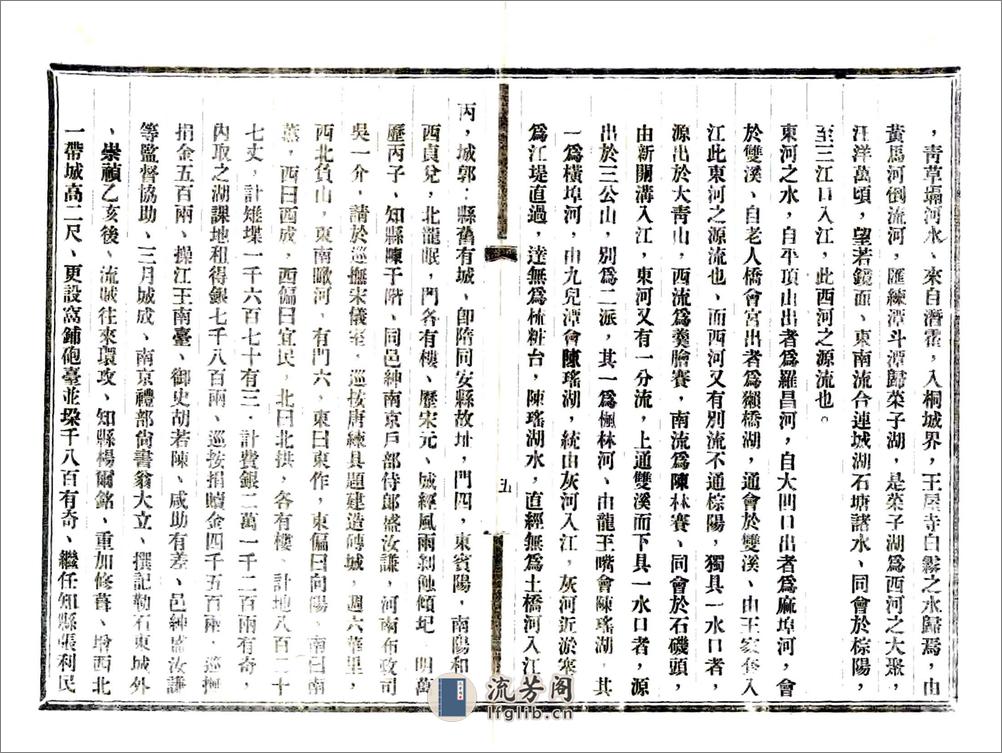 ，靑草塥河水、來自潛霍，入桐城界，王屋寺白 之水歸焉，由
黃馬河倒流河，匯練潭斗潭歸榮子湖，是榮子湖爲西河之大聚，
汪洋萬頃，望若鏡面、東南流合連城湖石塘諸水、同會於棕陽，
至三江口入江，此西河之源流也。
東河之水，自平頂山出者爲羅昌河，自大凹口出者爲麻埠河，會
於雙溪、自老人橋會宮出者爲獺橋湖，通會於雙溪、由王家套入
江此東河之源流也、而西河又有別流不通棕陽，獨具一水口者，
源出於大靑山，西流爲羹膾賽，南流爲陳林賽、同會於石磯頭，
由新開溝入江，東河又有一分流，上通雙溪而下具一水口者，源
出於三公山，別爲二派，其一爲楓林河、由龍王嘴會陳瑤湖，其
一爲橫埠河，由九兒潭會陳瑤湖，統由灰河入江，灰河近淤塞，
爲江堤直過，達無爲梳粧台，陳瑤湖水，直經無爲土橋河入江，
五
丙，城郭：縣舊有城、卽隋同安縣故址，門四，東賓陽，南陽和
西貞兌，北龍眠，門各有樓、歷宋元、城經風雨剝蝕傾圮，明萬
歷丙子、知縣陳于階、同邑紳南京戶部侍郞盛汝謙，河南布政司
吳一介，請於巡撫宋儀望，巡按唐練具題建造磚城，週六華里，
西北負山，東南瞰河，有門六、東曰東作，東偏曰向陽、南曰南
薰，西曰西成，西偏曰宜民，北曰北拱，各有樓、計地八百二十
七丈，計雉堞一千六百七十有三、計費銀二萬一千二百兩有奇，
內取之湖課地租得銀七千八百兩、巡按捐贖金四千五百兩、巡撫
捐金五百兩、操江王南臺、御史胡若陳、咸助有差、邑紳盛汝謙
等監督協助、三月城成、南京禮部尙書翁大立、撰記勒石東城外
、崇禎乙亥後、流賊往來環攻、知縣楊爾銘、重加修葺、增西北
一帶城高二尺、更設窩鋪砲臺並垜千八百有奇、繼任知縣張利民
流芳阁
lfglib.cn